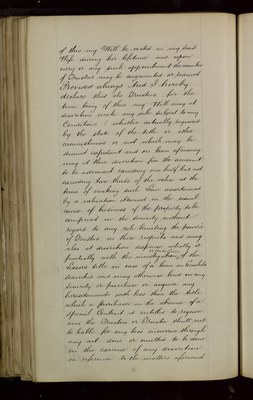 of this my Will be vested in my said
Wife during her lifetime and upon
every or any such appointment the number
of Trustees may be augmented or reduced
Provided always And I hereby
declare that the Trustees for the
time being of this my Will may at
discretion make any sale subject to any
Conditions (whether actually required
by the state of the title or other
circumstances or not which may be
deemed expedient and on loan of money
may at their discretion fix the amount
to be advanced exceeding one half but not
exceeding two thirds of the value at the
time of making such loan ascertained
by a valuation obtained in the usual
course of business of the property to be
comprised in the security without
regard to any rule limiting the powers
of Trustees in these respects and may
also at discretion dispense wholly or
partially with the investigation of the
lessors title in case of a loan on leasehold
securities and may otherwise lend on any
security or purchase or acquire any
hereditaments with less than the title
which a purchaser in the absence of a
special Contract is entitled to require
and the Trustees or Trustee shall not
be liable for any loss incurred through
any act done or omitted to be done
in the exercise of any discretion
in reference to the matters aforesaid